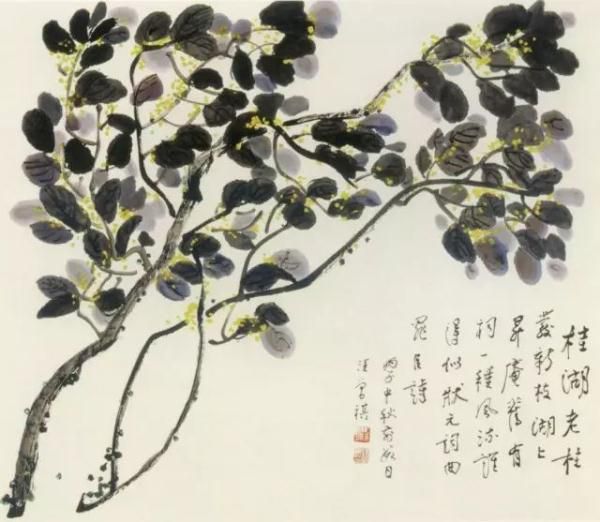 桂湖老桂
發新枝湖上
昇庵舊有
祠一種風流誰
得似狀元詞曲
罪臣詩
丙子中秋前日
汪曾祺